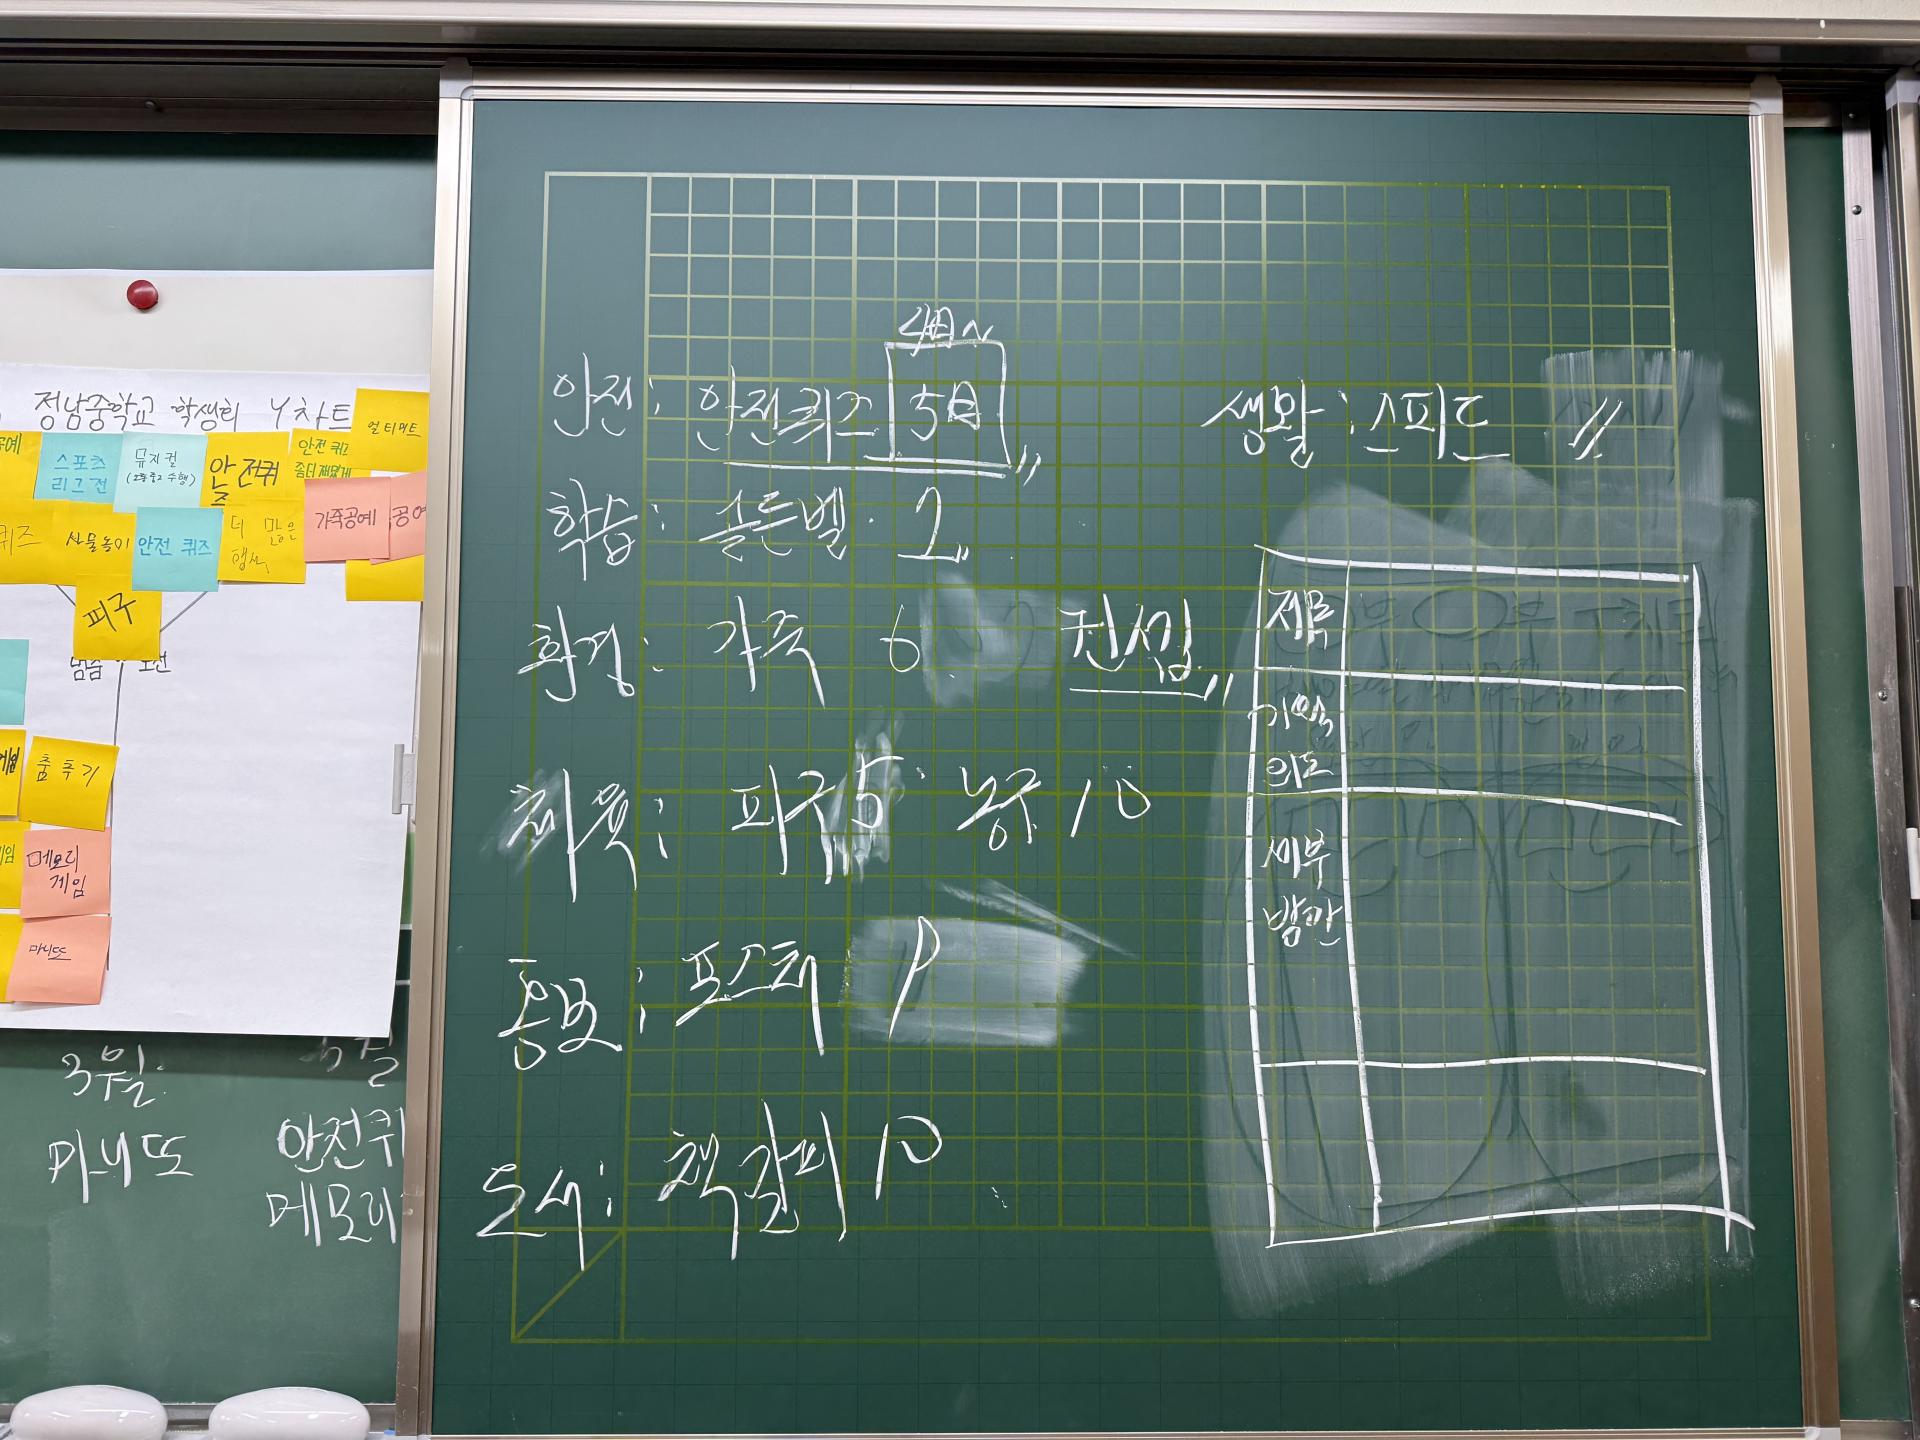 정남중학교 학생회 Y차트
얼티미트
스포츠
리그전
뮤지컬
(2층중2 수행)
안전퀴
즈
안전 퀴즈
좀더 재밌게
퀴즈
사물놀이
안전 퀴즈
더 많은
행사
가죽공예
공예
피구
넘줌
춤추기
메모리
게임
마니또
3월:
마니또
안전퀴
메모리
안전: 안전퀴즈 5월
4월~
생활: 스피드 11
학습: 골든벨 2
환경: 가죽 6
체육: 피구 5 농구 10
홍보: 포스터
도서: 책갈피 10
제목
기획
의도
세부
방안